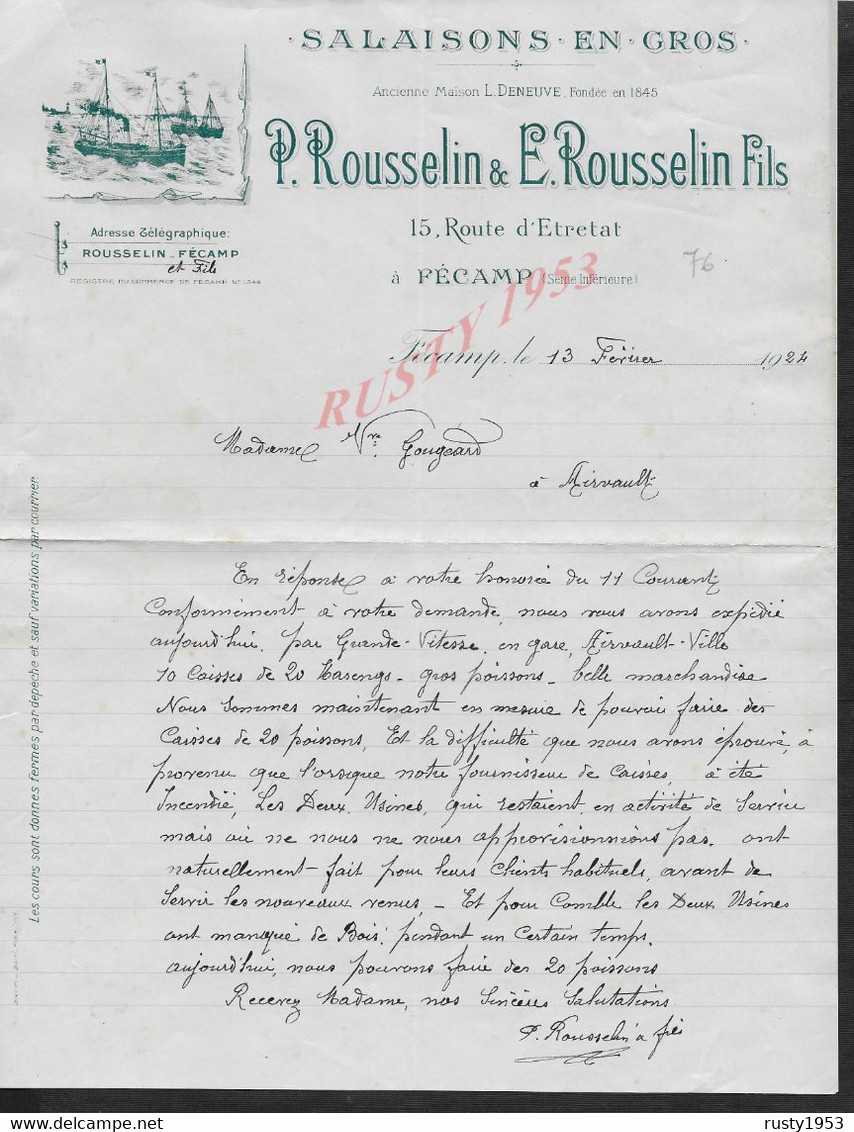 · SALAISONS · EN · GROS ·
Ancienne Maison L. DENEUVE, Fondée en 1845
P. Rousselin & E. Rousselin Fils
15, Route d'Etretat
à FÉCAMP (Seine Inférieure)
76
Adresse Télégraphique:
ROUSSELIN _ FÉCAMP
et Fils
REGISTRE DU COMMERCE DE FECAMP Nº 1349
RUSTY 1953
Fécamp, le 13 Février 1924
Madame Vve Gougeard
à Airvault
Les cours sont donnés fermes par dépêche et sauf variations par courrier.
En réponse à votre honorée du 11 Courant
Conformément à votre demande, nous vous avons expédié
aujourd'hui, par Grande-Vitesse, en gare, Airvault-Ville
10 Caisses de 20 Harengs - gros poissons - belle marchandise
Nous sommes maintenant en mesure de pouvoir faire des
Caisses de 20 poissons, Et la difficulté que nous avons éprouvé, à
provenu que l'orsque notre fournisseur de Caisses, à été
Incendié, Les Deux Usines, qui restaient en activité de Service
mais où ne nous ne nous approvisionnions pas, ont
naturellement fait pour leurs Clients habituels, avant de
Servir les nouveaux venus, - Et pour Comble les Deux Usines
ont manqué de Bois, pendant un Certain temps,
aujourd'hui, nous pouvons faire des 20 poissons
Recevez Madame, nos Sincères Salutations
P. Rousselin & fils
delcampe.net
rusty1953